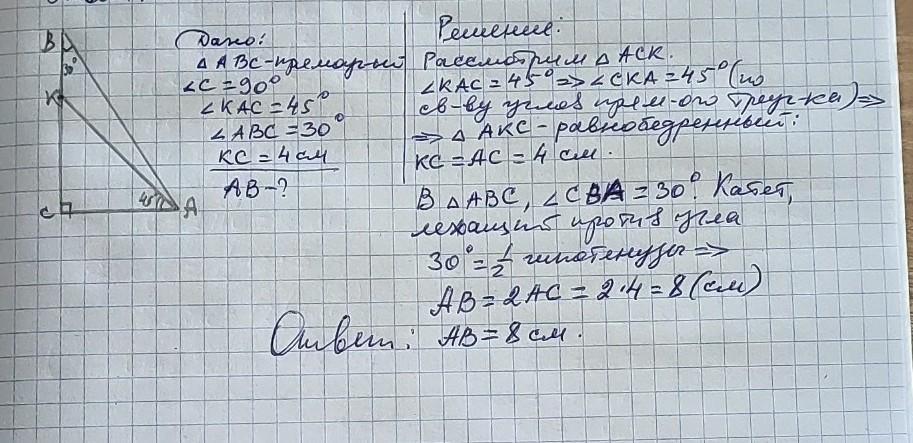 B
30°
K
C
45°
A
Дано:
△ ABC-прямоуг-ый
∠C = 90°
∠KAC = 45°
∠ABC = 30°
KC = 4 см
AB - ?
Решение:
Рассмотрим △ ACK.
∠KAC = 45° => ∠CKA = 45° (по
св-ву углов прям-ого треуг-ка) =>
=> △ AKC - равнобедренный:
KC = AC = 4 см.
В △ ABC, ∠CBA = 30°. Катет,
лежащий против угла
30° = 1/2 гипотенузы =>
AB = 2AC = 2·4 = 8 (см)
Ответ: AB = 8 см.